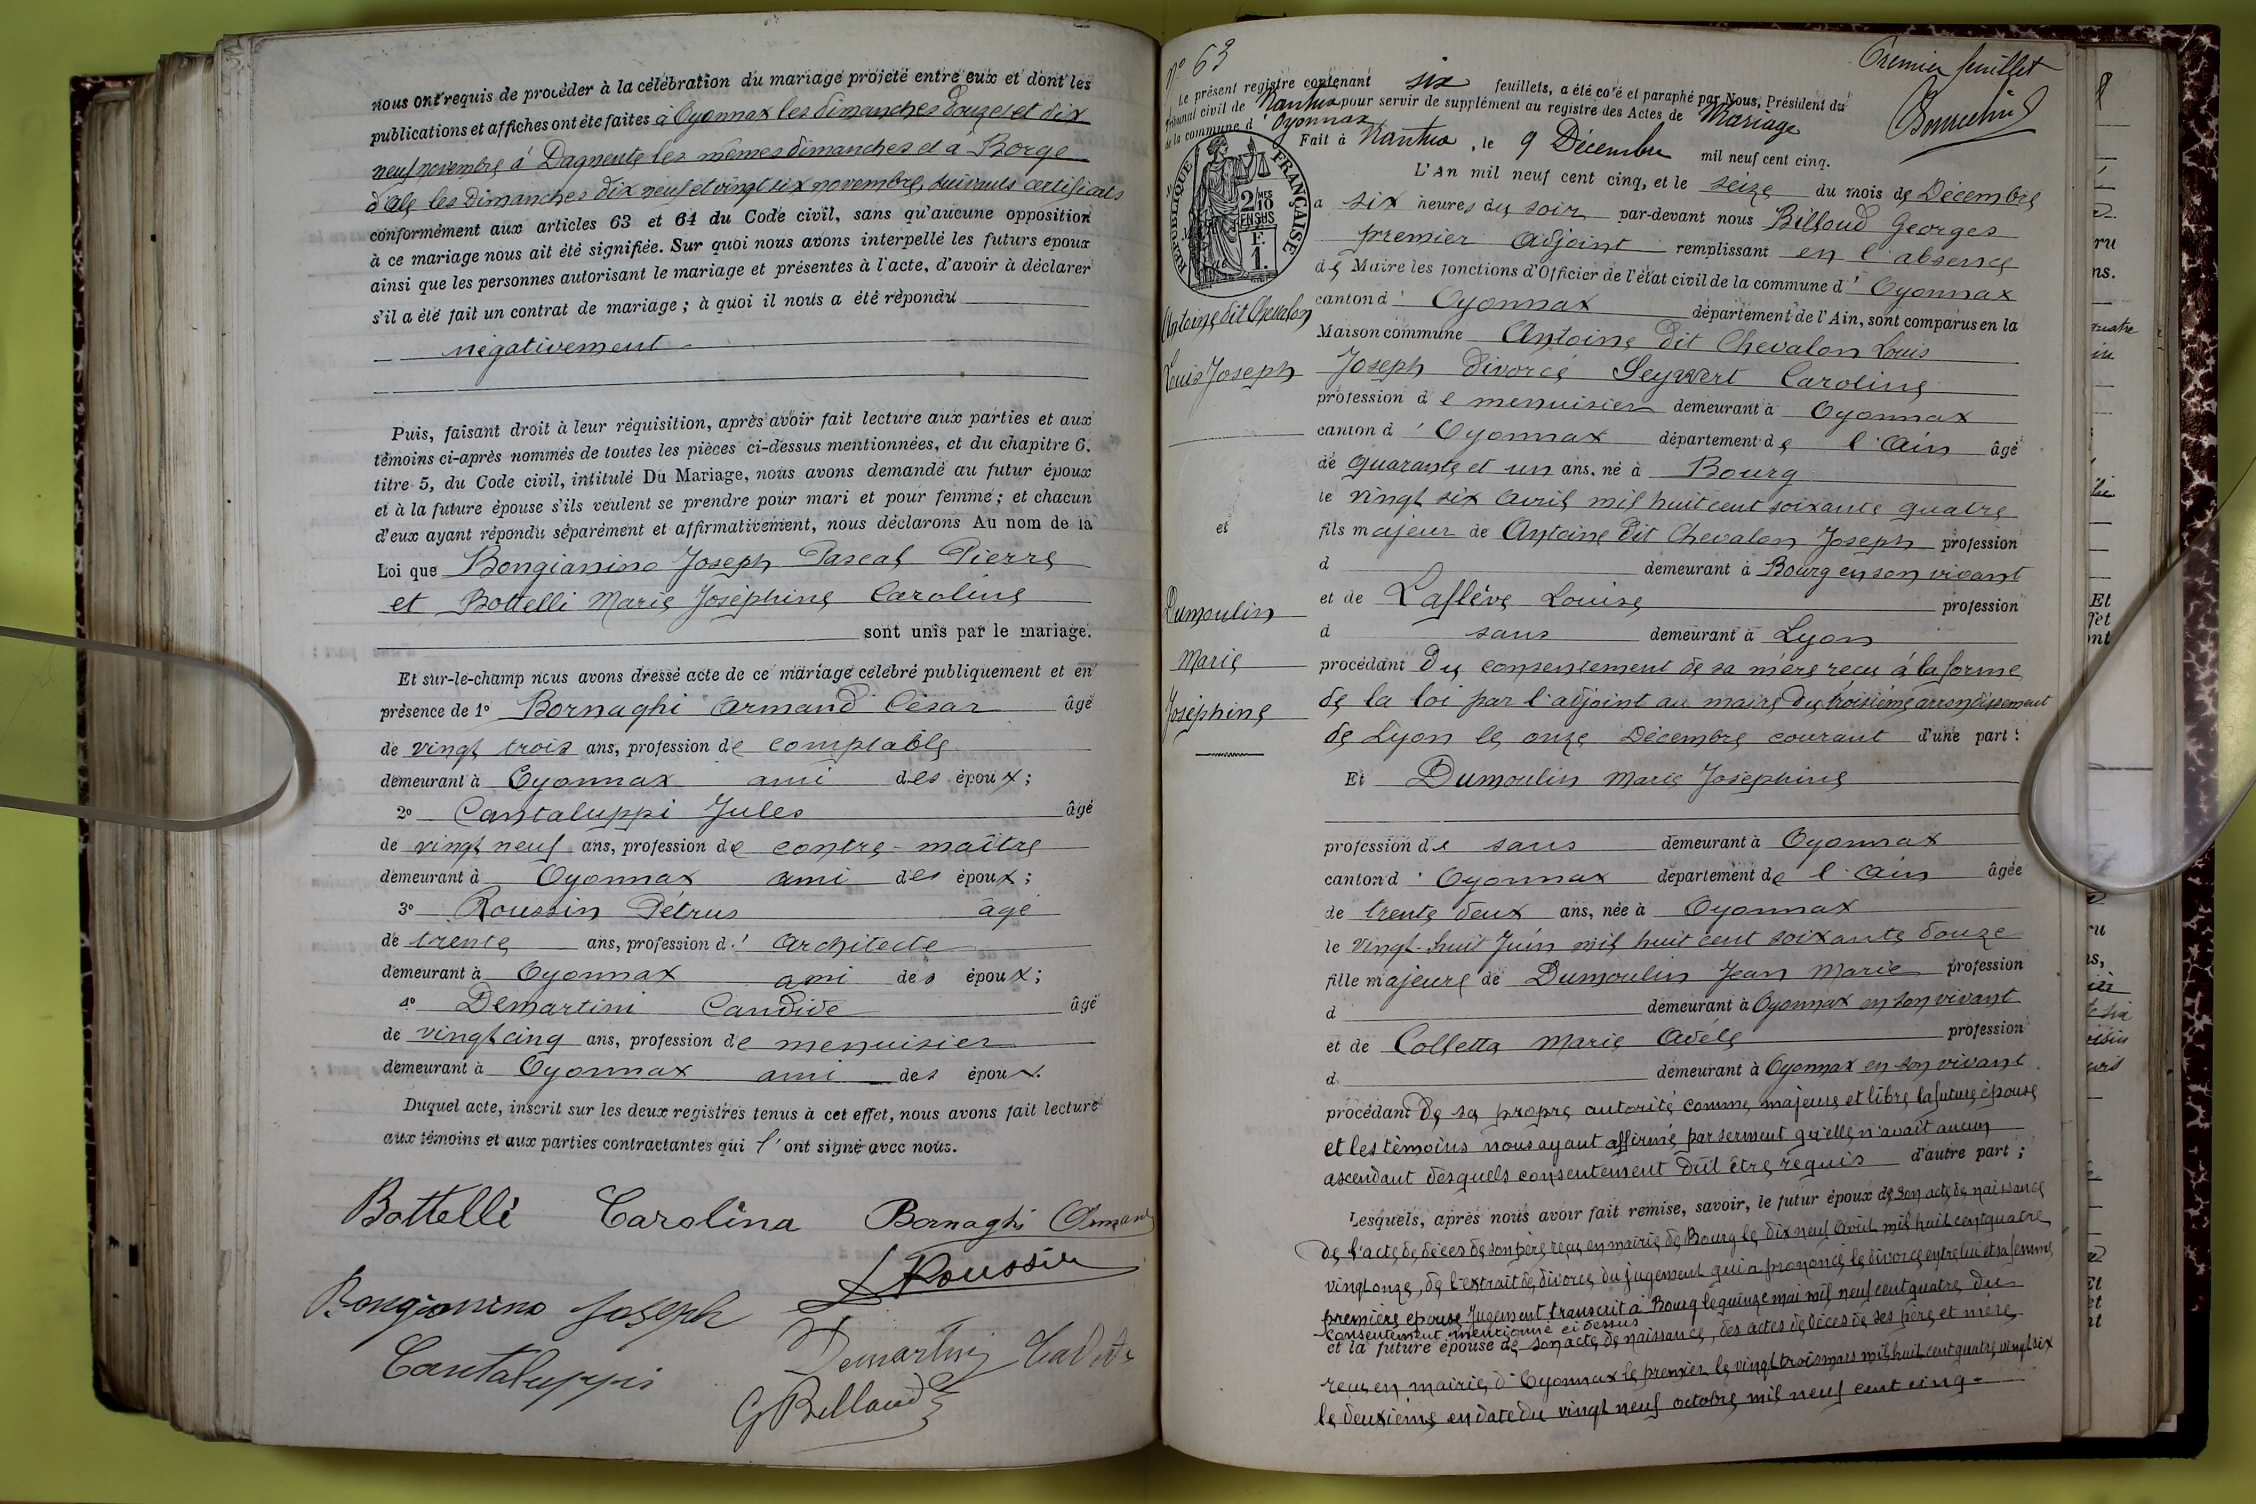 nous ont requis de procéder à la célébration du mariage projeté entre eux et dont les
publications et affiches ont été faites à Oyonnax les dimanches douze et dix
neuf novembre à Dagnente les mêmes dimanches et à Borgo
d'Ale les Dimanches dix neuf et vingt six novembre, suivants certificats
conformément aux articles 63 et 64 du Code civil, sans qu'aucune opposition
à ce mariage nous ait été signifiée. Sur quoi nous avons interpellé les futurs époux
ainsi que les personnes autorisant le mariage et présentes à l'acte, d'avoir à déclarer
s'il a été fait un contrat de mariage ; à quoi il nous a été répondu
négativement
Puis, faisant droit à leur réquisition, après avoir fait lecture aux parties et aux
témoins ci-après nommés de toutes les pièces ci-dessus mentionnées, et du chapitre 6,
titre 5, du Code civil, intitulé Du Mariage, nous avons demandé au futur époux
et à la future épouse s'ils veulent se prendre pour mari et pour femme ; et chacun
d'eux ayant répondu séparément et affirmativement, nous déclarons Au nom de la
Loi que Bongianino Joseph Pascal Pierre
et Bottelli Marie Joséphine Caroline
sont unis par le mariage.
Et sur-le-champ nous avons dressé acte de ce mariage célébré publiquement et en
présence de 1° Bornaghi Armand César âgé
de vingt trois ans, profession de comptable
demeurant à Oyonnax ami des époux ;
2° Cantaluppi Jules âgé
de vingt neuf ans, profession de contre-maître
demeurant à Oyonnax ami des époux ;
3° Roussin Pétrus âgé
de trente ans, profession d' architecte
demeurant à Oyonnax ami des époux ;
4° Demartini Candide âgé
de vingt cinq ans, profession de menuisier
demeurant à Oyonnax ami des époux.
Duquel acte, inscrit sur les deux registres tenus à cet effet, nous avons fait lecture
aux témoins et aux parties contractantes qui l'ont signé avec nous.
Bottelli Carolina Bornaghi Armand
Roussin
Bongianino Joseph
Demartini
Cantaluppi
G Billaud
N° 63
Premier feuillet
Le présent registre contenant six feuillets, a été coté et paraphé par Nous, Président du
Tribunal civil de Nantua pour servir de supplément au registre des Actes de Mariage
de la commune d'Oyonnax
Fait à Nantua, le 9 Décembre mil neuf cent cinq.
RÉPUBLIQUE FRANÇAISE
2/10
MES
EN SUS
F.
1.
L'An mil neuf cent cinq, et le seize du mois de Décembre
a six heures du soir par-devant nous Billoud Georges
premier adjoint remplissant en l'absence
de Maire les fonctions d'Officier de l'état civil de la commune d'Oyonnax
canton d'Oyonnax département de l'Ain, sont comparus en la
Maison commune Antoine dit Chevalon Louis
Joseph divorcé Seyvert Caroline
profession de menuisier demeurant à Oyonnax
canton d'Oyonnax département de l'Ain âgé
de quarante et un ans, né à Bourg
le vingt six avril mil huit cent soixante quatre
fils majeur de Antoine dit Chevalon Joseph profession
d demeurant à Bourg en son vivant
et de Laflève Louise profession
d sans demeurant à Lyon
procédant du consentement de sa mère reçu à la forme
de la loi par l'adjoint au maire du troisième arrondissement
de Lyon le onze Décembre courant d'une part :
Et Dumoulin Marie Joséphine
profession de sans demeurant à Oyonnax
canton d'Oyonnax département de l'Ain âgée
de trente deux ans, née à Oyonnax
le vingt-huit Juin mil huit cent soixante douze
fille majeure de Dumoulin Jean Marie profession
d demeurant à Oyonnax en son vivant
et de Colletta Marie Adèle profession
d demeurant à Oyonnax en son vivant
procédant de sa propre autorité comme majeure et libre la future épouse
et les témoins nous ayant affirmé par serment qu'elle n'avait aucun
ascendant desquels consentement dût être requis d'autre part ;
Lesquels, après nous avoir fait remise, savoir, le futur époux de son acte de naissance
de l'acte de décès de son père reçu en mairie de Bourg le dix neuf Août mil huit cent quatre
vingt onze, de l'extrait de divorce du jugement qui a prononcé le divorce entre lui et sa femme
première épouse Jugement transcrit à Bourg le quinze mai mil neuf cent quatre du
consentement mentionné ci dessus
et la future épouse de son acte de naissance, des actes de décès de ses père et mère
reçus en mairie d'Oyonnax le premier le vingt trois mars mil huit cent quatre vingt six
le deuxième en date du vingt neuf octobre mil neuf cent cinq.
Antoine dit Chevalon
Louis Joseph
et
Dumoulin
Marie
Joséphine